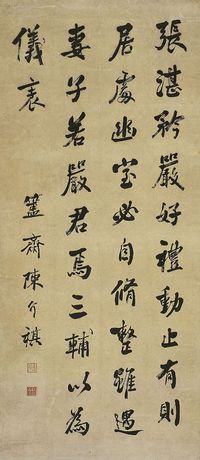 張湛矜嚴好禮動止有則
居處幽室必自脩整雖遇
妻子若嚴君焉三輔以為
儀表
簠齋陳介祺